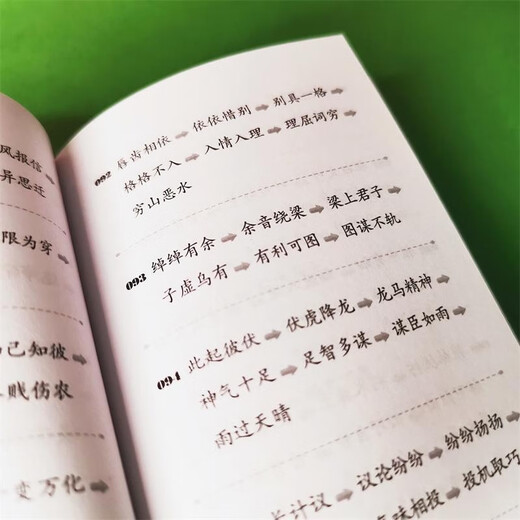 风报信➡
异思迁
限为穿
己知彼
贱伤农
变万化➡
092 唇齿相依➡依依惜别➡别具一格➡
格格不入➡入情入理➡理屈词穷➡
穷山恶水
093 绰绰有余➡余音绕梁➡梁上君子➡
子虚乌有➡有利可图➡图谋不轨
094 此起彼伏➡伏虎降龙➡龙马精神➡
神气十足➡足智多谋➡谋臣如雨➡
雨过天晴
长计议➡议论纷纷➡纷纷扬扬➡
意味相投➡投机取巧